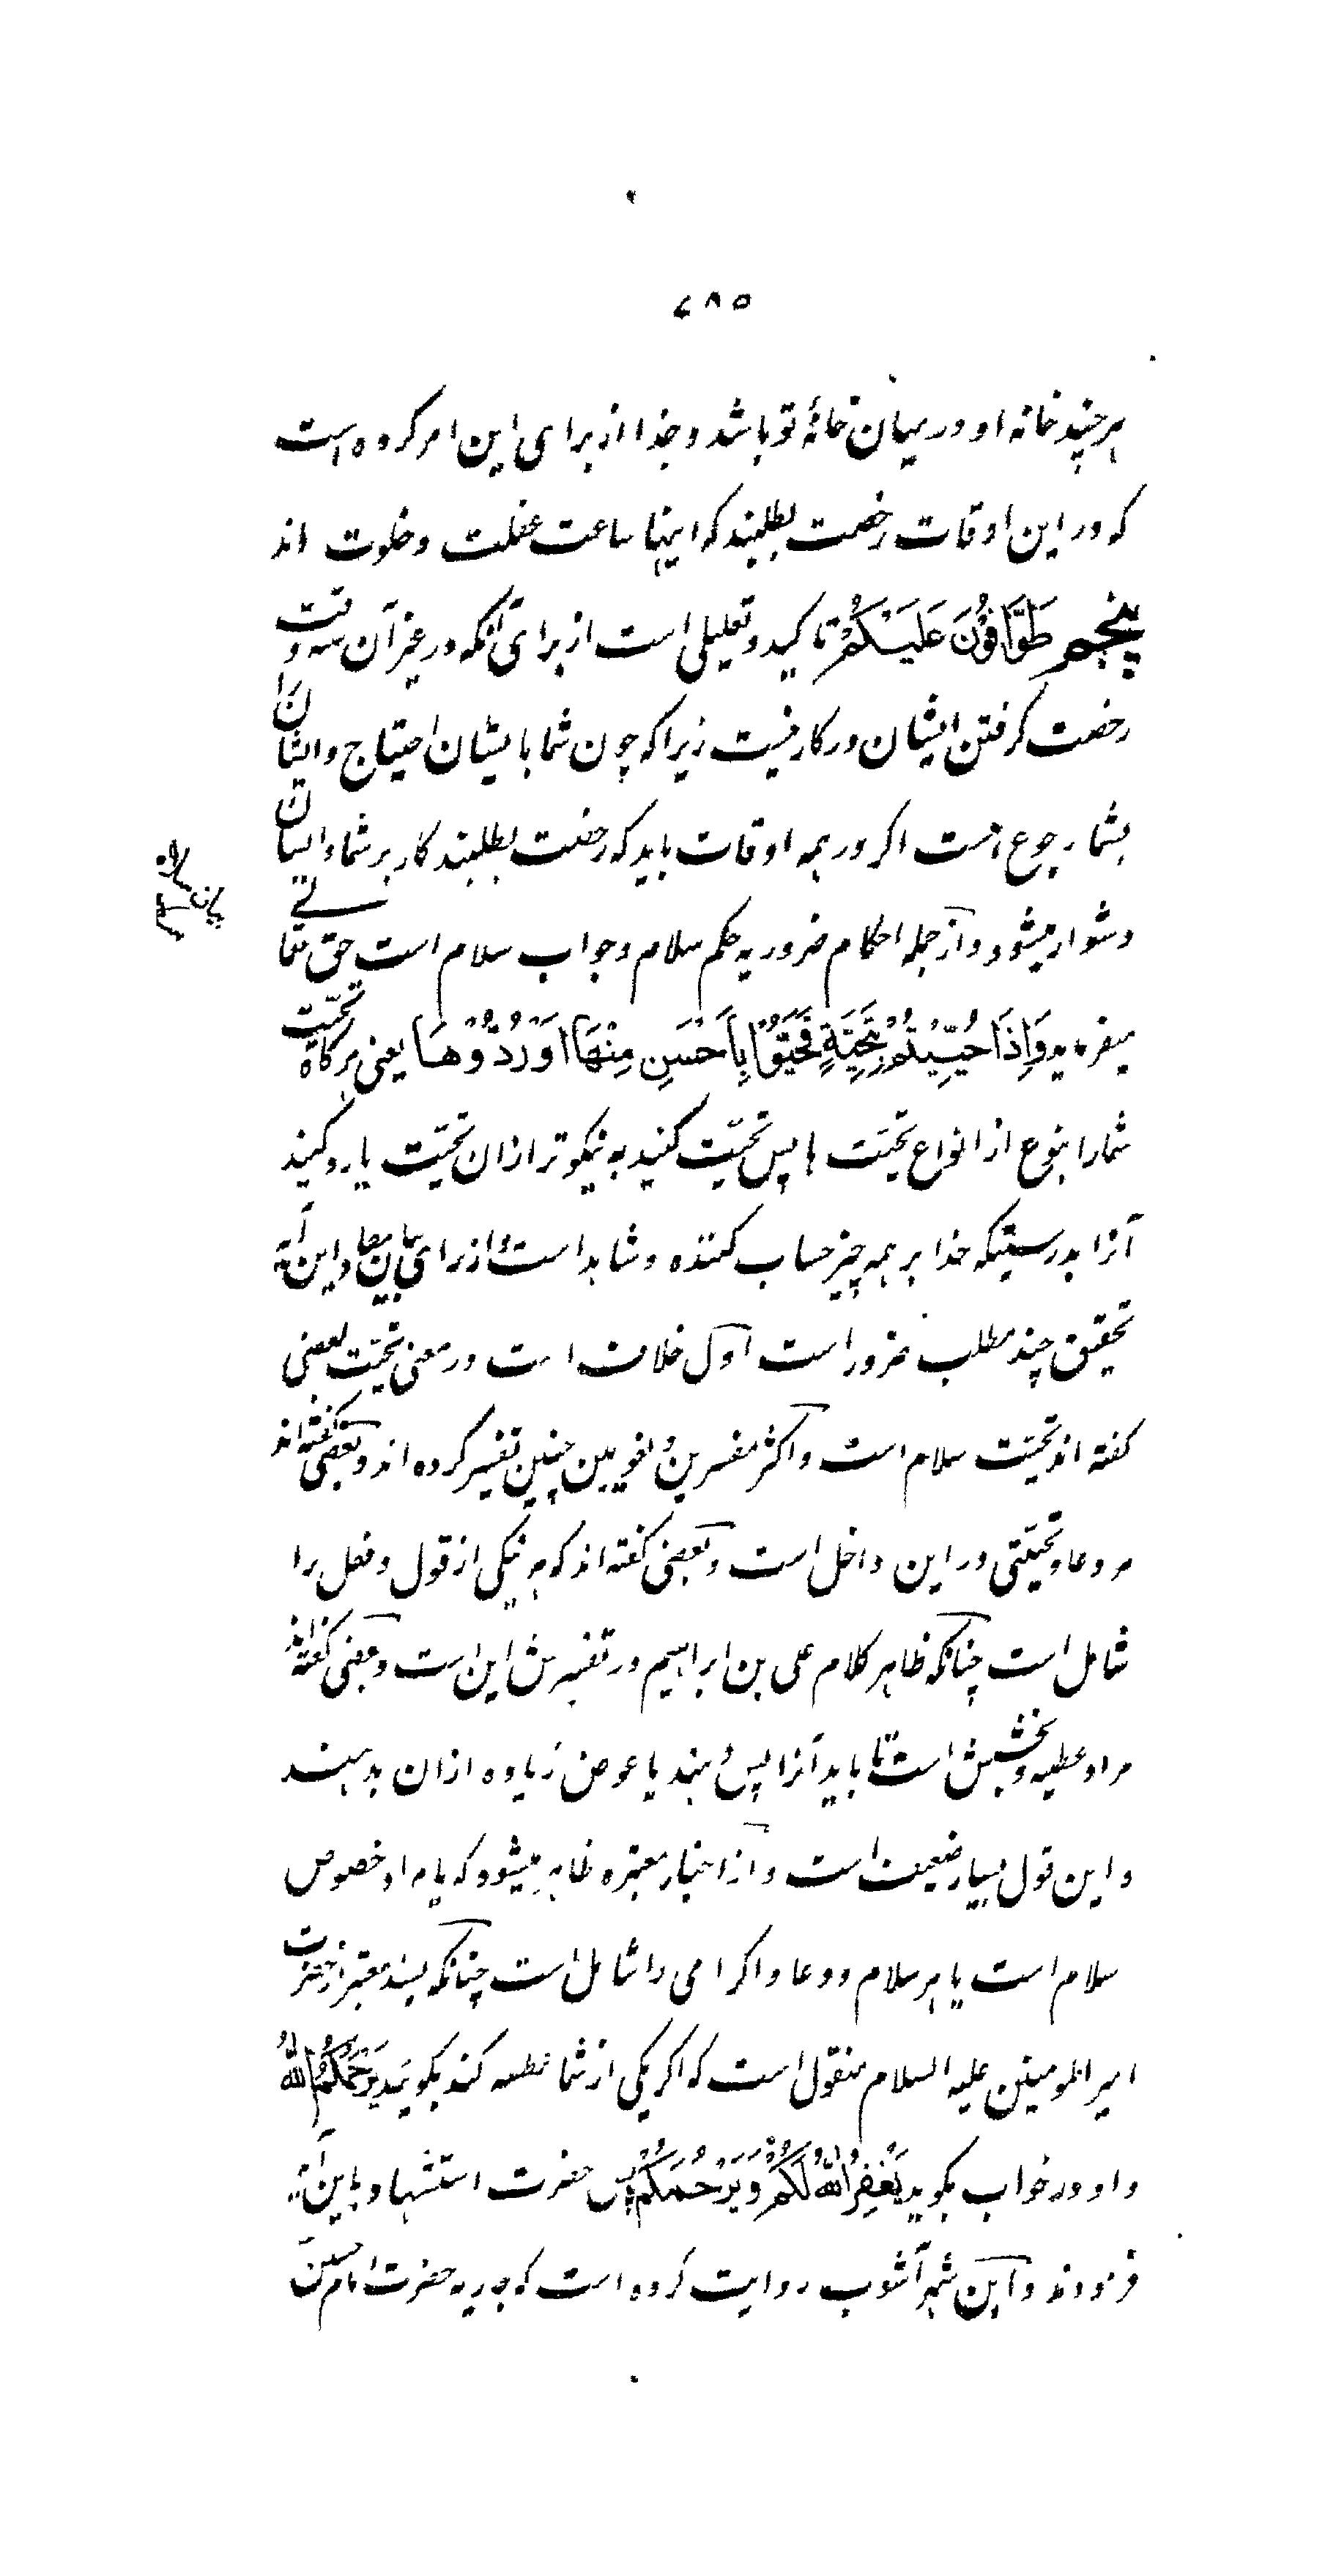 ۷۸۵
هر چند خانه او در میان خانهٔ تو باشد و خدا از برای این امر کرده است
که در این اوقات رخصت بطلبند که اینها ساعت غفلت و خلوت اند
پنجم طَوَّافُونَ عَلَيْكُمْ تاکید و تعلیلی است از برای آنکه در غیر آن سه وقت
رخصت کرفتن ایشان در کار نیست زیرا که چون شما بایشان احتیاج و ایشان را
بشما رجوع هست اکر در همه اوقات باید که رخصت بطلبند کار بر شما و ایشان
دشوار میشود و از جمله احکام ضروریه حکم سلام و جواب سلام است حق تعالی
میفرماید وَاِذَا حُيِّيْتُمْ بِتَحِيَّةٍ فَحَيُّوْا بِاَحْسَنِ مِنْهَا اَوْ رُدُّوْهَا یعنی هرکاه تحیّت
شما را بنوع از انواع تحیّت ها پس تحیّت کنید به نیکو تر از ان تحیّت یا رد کنید
آنرا بدرستیکه خدا بر همه چیز حساب کننده و شاهد است و از برای بیان مفاد این آیه
تحقیق چند مطلب ضرور است اول خلاف است در معنی تحیّت بعضی
کفته اند تحیّت سلام است و اکثر مفسرین و لغویین چنین تفسیر کرده اند و بعضی کفته اند
هر دعا و تحیّتی در این داخل است و بعضی کفته اند که هر نیکی از قول و فعل را
شامل است چنانکه ظاهر کلام علی بن ابراهیم در تفسیرش این است و بعضی کفته اند
مراد عطیه و بخشش است تا باید آنرا پس دهند یا عوض زیاده از ان بدهند
و این قول بسیار ضعیف است و از اخبار معتبره ظاهر میشود که یا مراد خصوص
سلام است یا هر سلام و دعا و اکرامی را شامل است چنانکه بسند معتبر از حضرت
امیر المومنین علیه السلام منقول است که اکر یکی از شما عطسه کند بکویید يَرْحَمُكُمُ اللّٰهُ
و او در جواب بکوید يَغْفِرُ اللّٰهُ لَكُمْ وَيَرْحَمُكُمْ پس حضرت استشهاد باین آیه
فرمودند و ابن شهر آشوب روایت کرده است که جاریه حضرت امام حسین
بیان سلام